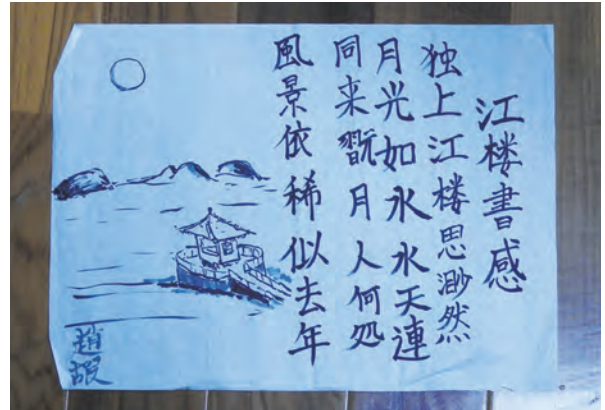 江楼書感
独上江楼思渺然
月光如水水天連
同来翫月人何処
風景依稀似去年
趙嘏